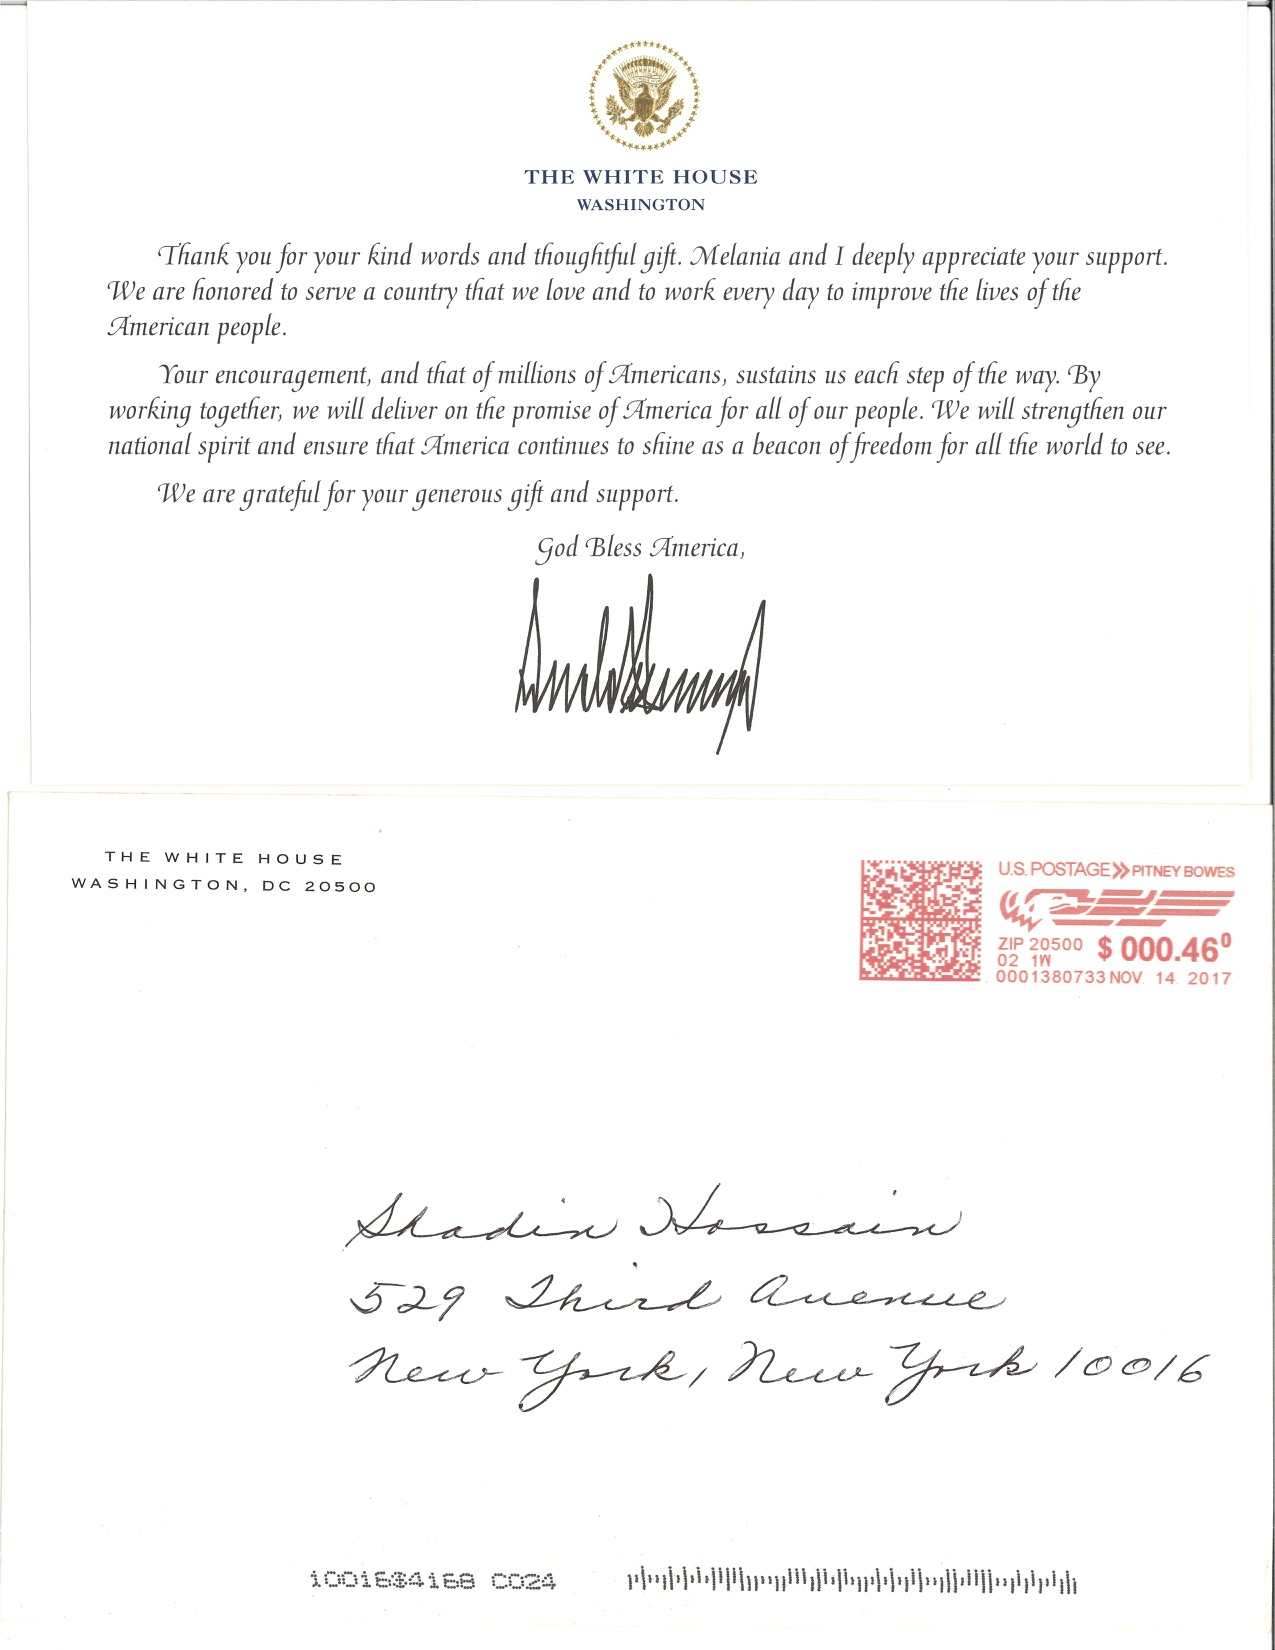 THE WHITE HOUSE
WASHINGTON
Thank you for your kind words and thoughtful gift. Melania and I deeply appreciate your support.
We are honored to serve a country that we love and to work every day to improve the lives of the
American people.
Your encouragement, and that of millions of Americans, sustains us each step of the way. By
working together, we will deliver on the promise of America for all of our people. We will strengthen our
national spirit and ensure that America continues to shine as a beacon of freedom for all the world to see.
We are grateful for your generous gift and support.
God Bless America,
THE WHITE HOUSE
WASHINGTON, DC 20500
U.S. POSTAGE PITNEY BOWES
ZIP 20500 $ 000.46⁰
02 1W
0001380733 NOV 14 2017
Shadin Hossain
529 Third Avenue
New York, New York 10016
C024